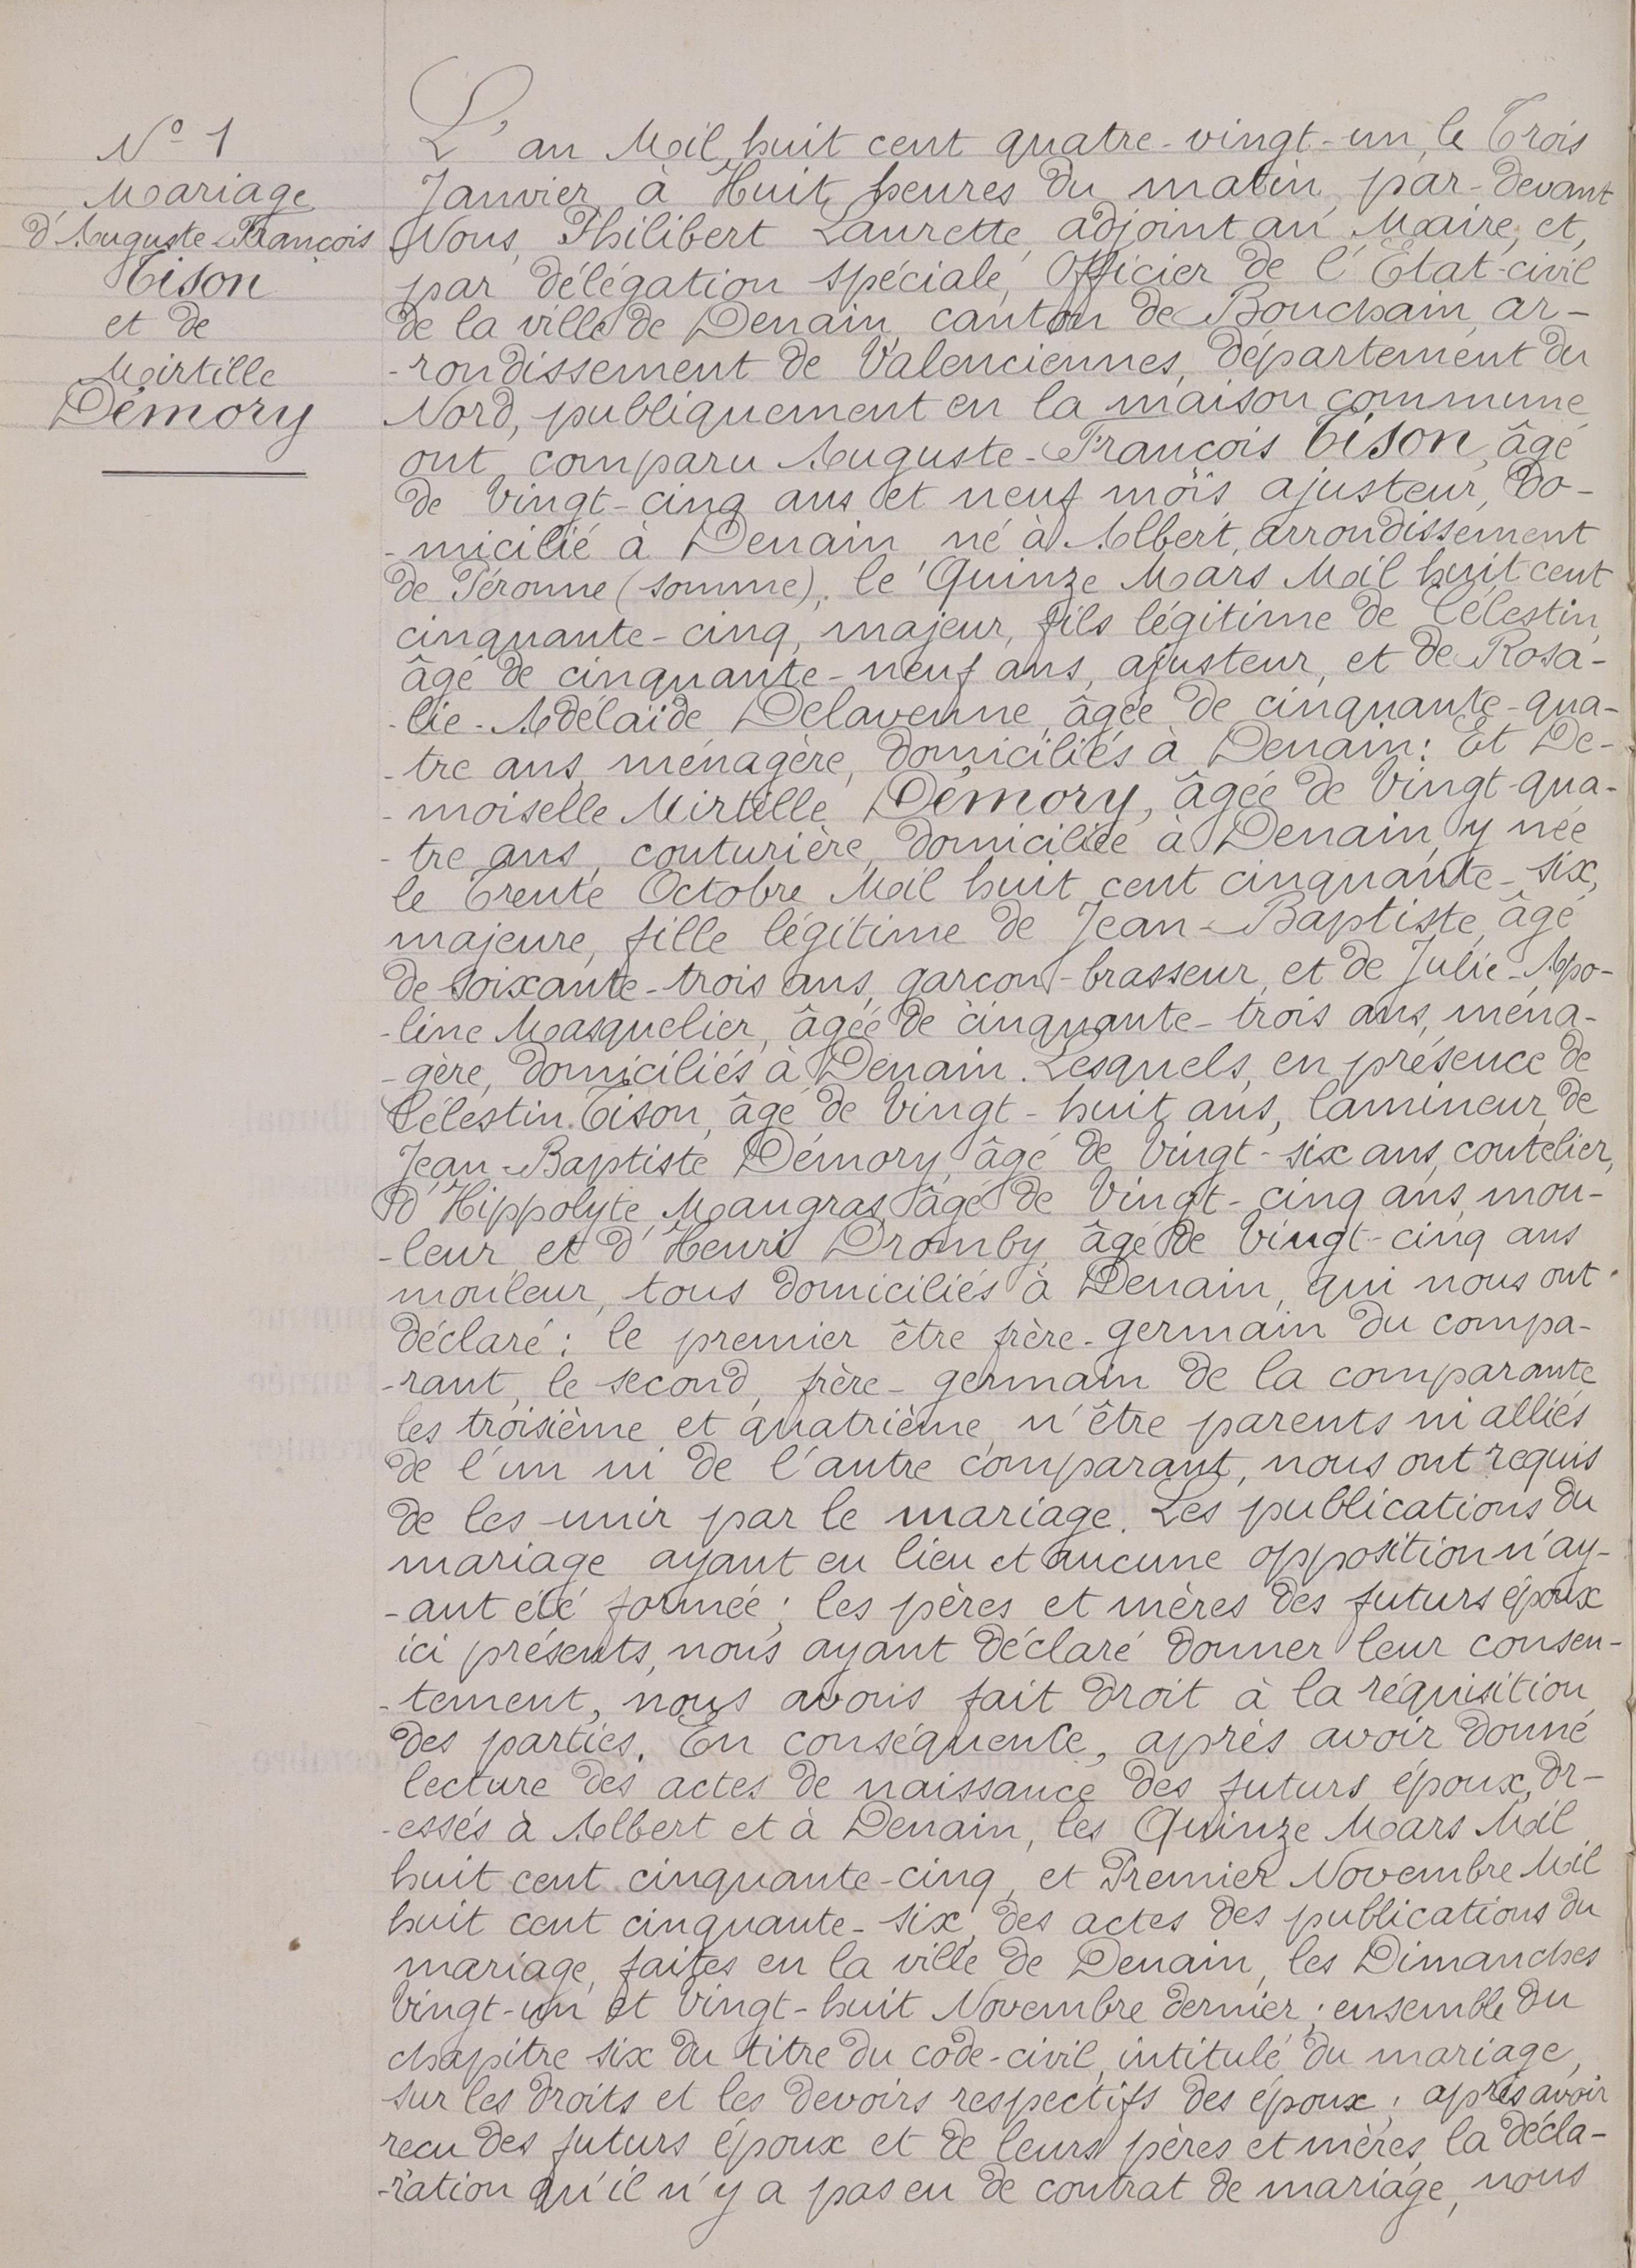 N° 1
Mariage
d'Auguste-François
Tison
et de
Mirtille
Démory
L'an Mil huit cent quatre-vingt-un, le Trois
Janvier à Huit heures du matin, par-devant
Nous, Philibert Laurette, adjoint au Maire, et,
par délégation spéciale, Officier de l'Etat-civil
de la ville de Denain, canton de Bouchain, ar-
-rondissement de Valenciennes, département du
Nord, publiquement en la maison commune
ont comparu Auguste-François Tison, âgé
de vingt-cinq ans et neuf mois, ajusteur, do-
-micilié à Denain, né à Albert, arrondissement
de Péronne (Somme), le Quinze Mars Mil huit cent
cinquante-cinq, majeur, fils légitime de Célestin,
âgé de cinquante-neuf ans, ajusteur, et de Rosa-
-lie-Adélaïde Delavenne, âgée de cinquante-qua-
-tre ans, ménagère, domiciliés à Denain: Et De-
-moiselle Mirtille Démory, âgée de Vingt-qua-
-tre ans, couturière, domiciliée à Denain, y née
le Trente Octobre Mil huit cent cinquante-six,
majeure, fille légitime de Jean-Baptiste, âgé
de soixante-trois ans, garçon-brasseur, et de Julie-Apo-
-line Masquelier, âgée de cinquante-trois ans, ména-
-gère, domiciliés à Denain. Lesquels, en présence de
Célestin Tison, âgé de Vingt-huit ans, lamineur, de
Jean-Baptiste Démory, âgé de Vingt-six ans, coutelier,
d'Hippolyte Maugras, âgé de Vingt-cinq ans, mou-
-leur, et d'Henri Dromby, âgé de Vingt-cinq ans
mouleur, tous domiciliés à Denain, qui nous ont
déclaré: le premier être frère-germain du compa-
-rant, le second, frère-germain de la comparante
les troisième et quatrième, n'être parents ni alliés
de l'un ni de l'autre comparant, nous ont requis
de les unir par le mariage. Les publications du
mariage ayant eu lieu et aucune opposition n'ay-
-ant été formée; les pères et mères des futurs époux
ici présents, nous ayant déclaré donner leur consen-
-tement, nous avons fait droit à la réquisition
des parties. En conséquence, après avoir donné
lecture des actes de naissance des futurs époux, dr-
-essés à Albert et à Denain, les Quinze Mars Mil
huit cent cinquante-cinq, et Premier Novembre Mil
huit cent cinquante-six, des actes des publications du
mariage, faites en la ville de Denain, les Dimanches
Vingt-un et Vingt-huit Novembre dernier; ensemble du
chapitre six du titre du code-civil, intitulé du mariage,
sur les droits et les devoirs respectifs des époux; après avoir
recu des futurs époux et de leurs pères et mères, la décla-
-ration qu'il n'y a pas eu de contrat de mariage, nous